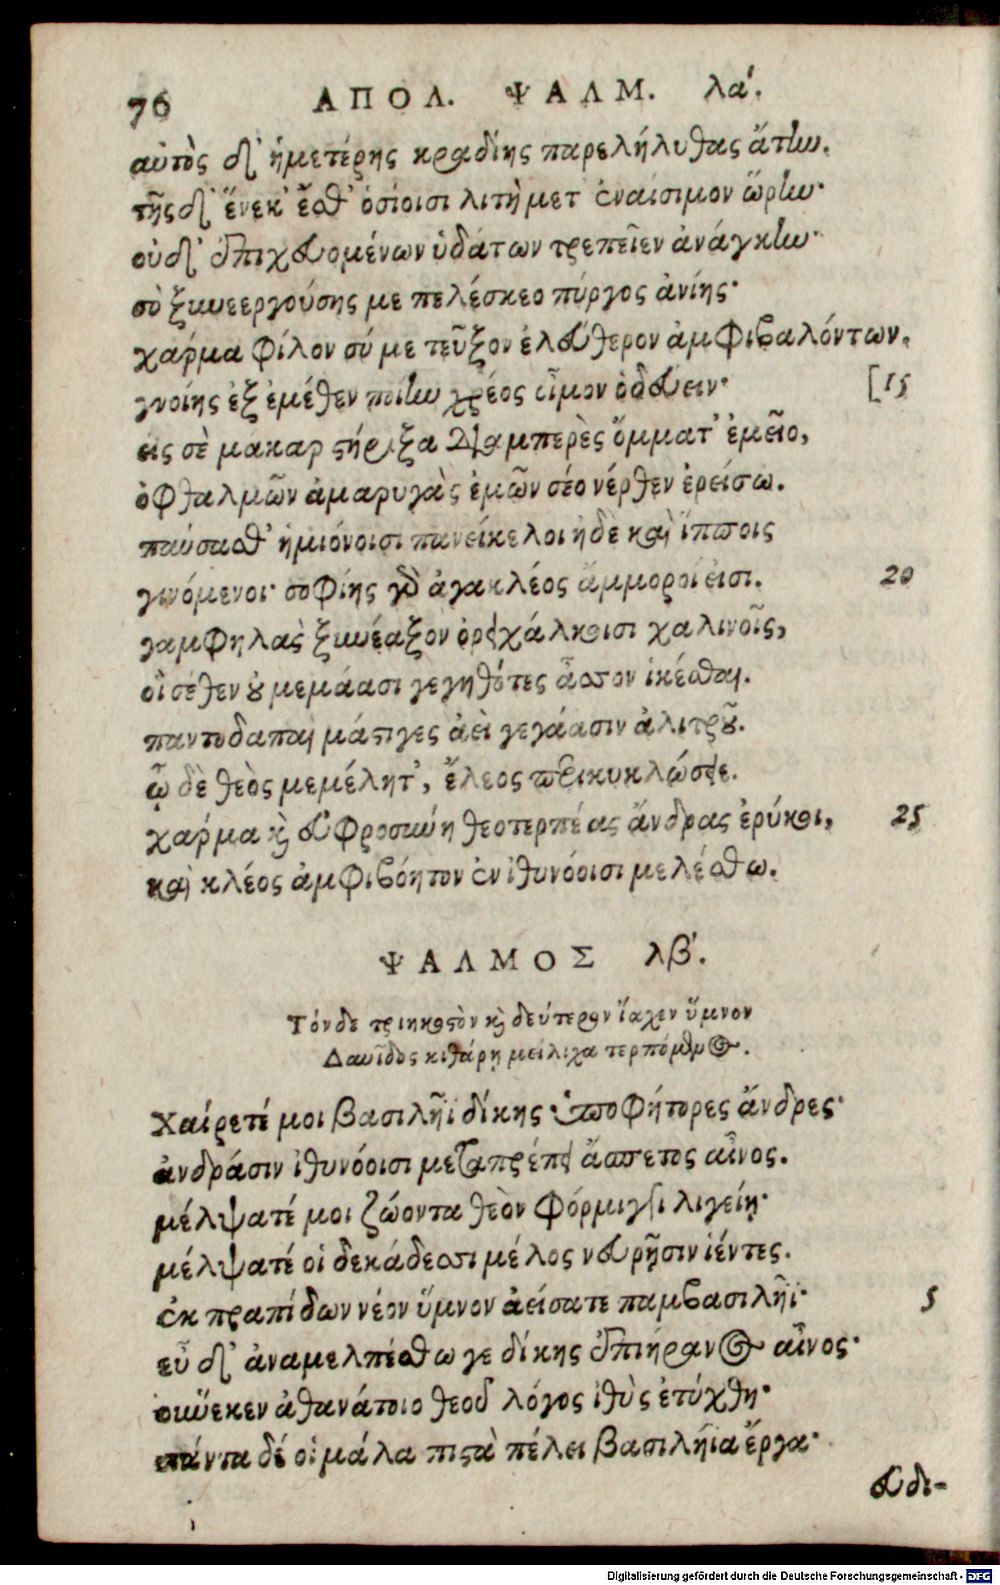 76 ΑΠΟΛ. ΨΑΛΜ. λα΄.
αὐτὸς δ' ἡμετέρης κραδίης παρελήλυθας ἄτην.
τῆς δ' ἕνεκ' ἔσθ' ὁσίοισι λιτὴ μετ ἐναίσιμον ὥρην·
οὐδ' ἐπιχευομένων ὑδάτων τρεπεῖεν ἀνάγκην·
σὺ ξυνεεργούσης με πελέσκεο πύργος ἀνίης·
χάρμα φίλον σύ με τεῦξον ἐλεύθερον ἀμφιβαλόντων.
γνοίης ἐξ ἐμέθεν ποίην χρέος οἶμον ὁδεύειν· [15
εἰς σὲ μακαρ στήριξα διαμπερὲς ὄμματ' ἐμεῖο,
ὀφθαλμῶν ἀμαρυγὰς ἐμῶν σέο νέρθεν ἐρείσω.
παύσασθ' ἡμιόνοισι πανείκελοι ἠδὲ καὶ ἵπποις
γινόμενοι· σοφίης γὰρ ἀγακλέος ἄμμοροί εἰσι. 20
γαμφηλὰς ξυνέαξον ὀρειχάλκοισι χαλινοῖς,
οἳ σέθεν οὐ μεμάασι γεγηθότες ἆσσον ἱκέσθαι.
παντοδαπαὶ μάστιγες ἀεὶ γεγάασιν ἀλιτροῦ.
ᾧ δὲ θεὸς μεμέλητ', ἔλεος περικυκλώσειε.
χάρμα καὶ εὐφροσύνη θεοτερπέας ἄνδρας ἐρύκοι, 25
καὶ κλέος ἀμφιβόητον ἐν ἰθυνόοισι μελέσθω.
ΨΑΛΜΟΣ λβ΄.
Τόνδε τριηκοστὸν καὶ δεύτερον ἴαχεν ὕμνον
Δαυῖδος κιθάρῃ μείλιχα τερπόμενος.
Χαίρετέ μοι βασιλῆϊ δίκης ὑποφήτορες ἄνδρες·
ἀνδράσιν ἰθυνόοισι μεταπρέπει ἄσπετος αἶνος.
μέλψατέ μοι ζώοντα θεὸν φόρμιγγι λιγείῃ·
μέλψατέ οἱ δεκάδεσσι μέλος νευρῇσιν ἱέντες.
ἐκ πραπίδων νέον ὕμνον ἀείσατε παμβασιλῆϊ· 5
εὖ δ' ἀναμελπέσθω γε δίκης ἐπιήρανος αἶνος·
οὕνεκεν ἀθανάτοιο θεοῦ λόγος ἰθὺς ἐτύχθη·
πάντα δέ οἱ μάλα πιστὰ πέλει βασιλήϊα ἔργα·
εὐδι-
Digitalisierung gefördert durch die Deutsche Forschungsgemeinschaft - DFG